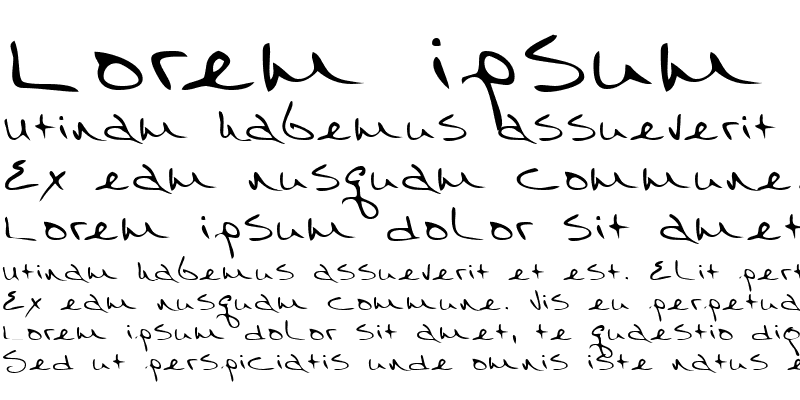 Lorem ipsum
utinam habemus assueverit
Ex eam nusquam commune.
Lorem ipsum dolor sit amet
utinam habemus assueverit et est. Elit pert
Ex eam nusquam commune. Vis eu perpetua
Lorem ipsum dolor sit amet, te quaestio dig
Sed ut perspiciatis unde omnis iste natus e